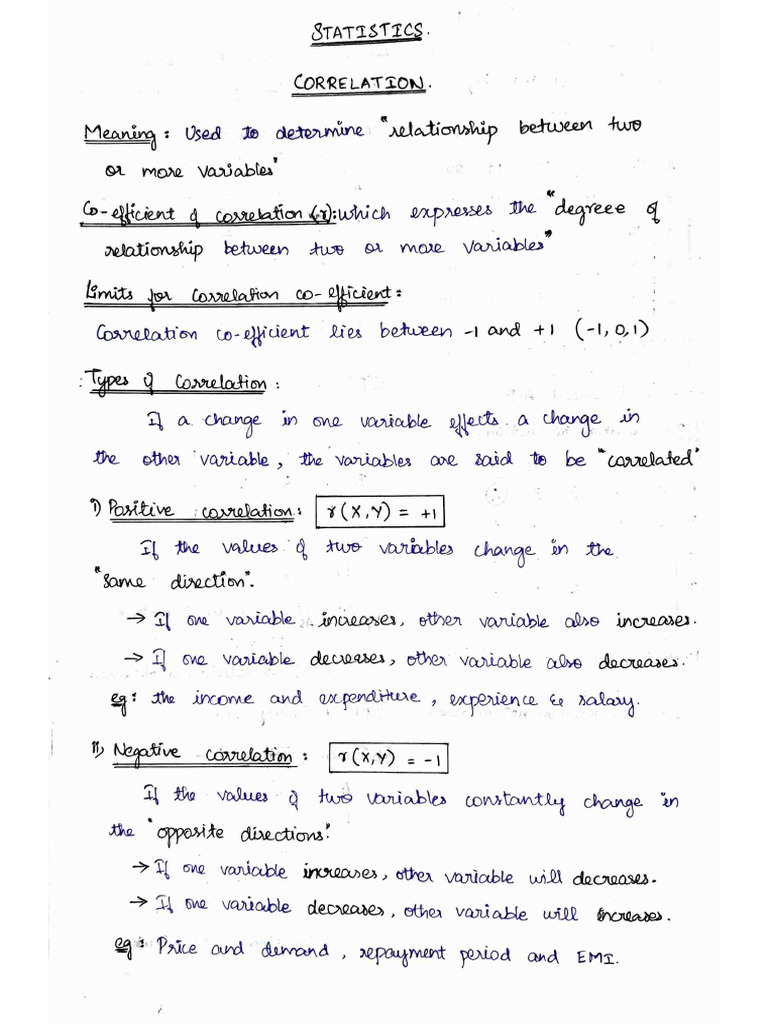 STATISTICS.
CORRELATION.
Meaning: Used to determine "relationship between two
or more variables"
Co-efficient of correlation (r): which expresses the "degreee of
relationship between two or more variables"
Limits for correlation co-efficient:
Correlation co-efficient lies between -1 and +1 (-1, 0, 1)
Types of correlation:
If a change in one variable effects a change in
the other variable, the variables are said to be "correlated"
i) Positive correlation: r(X,Y) = +1
If the values of two variables change in the
"same direction".
→ If one variable increases, other variable also increases.
→ If one variable decreases, other variable also decreases.
eg: the income and expenditure, experience & salary.
ii) Negative correlation: r(X,Y) = -1
If the values of two variables constantly change in
the "opposite directions."
→ If one variable increases, other variable will decreases.
→ If one variable decreases, other variable will increases.
eg: Price and demand, repayment period and EMI.